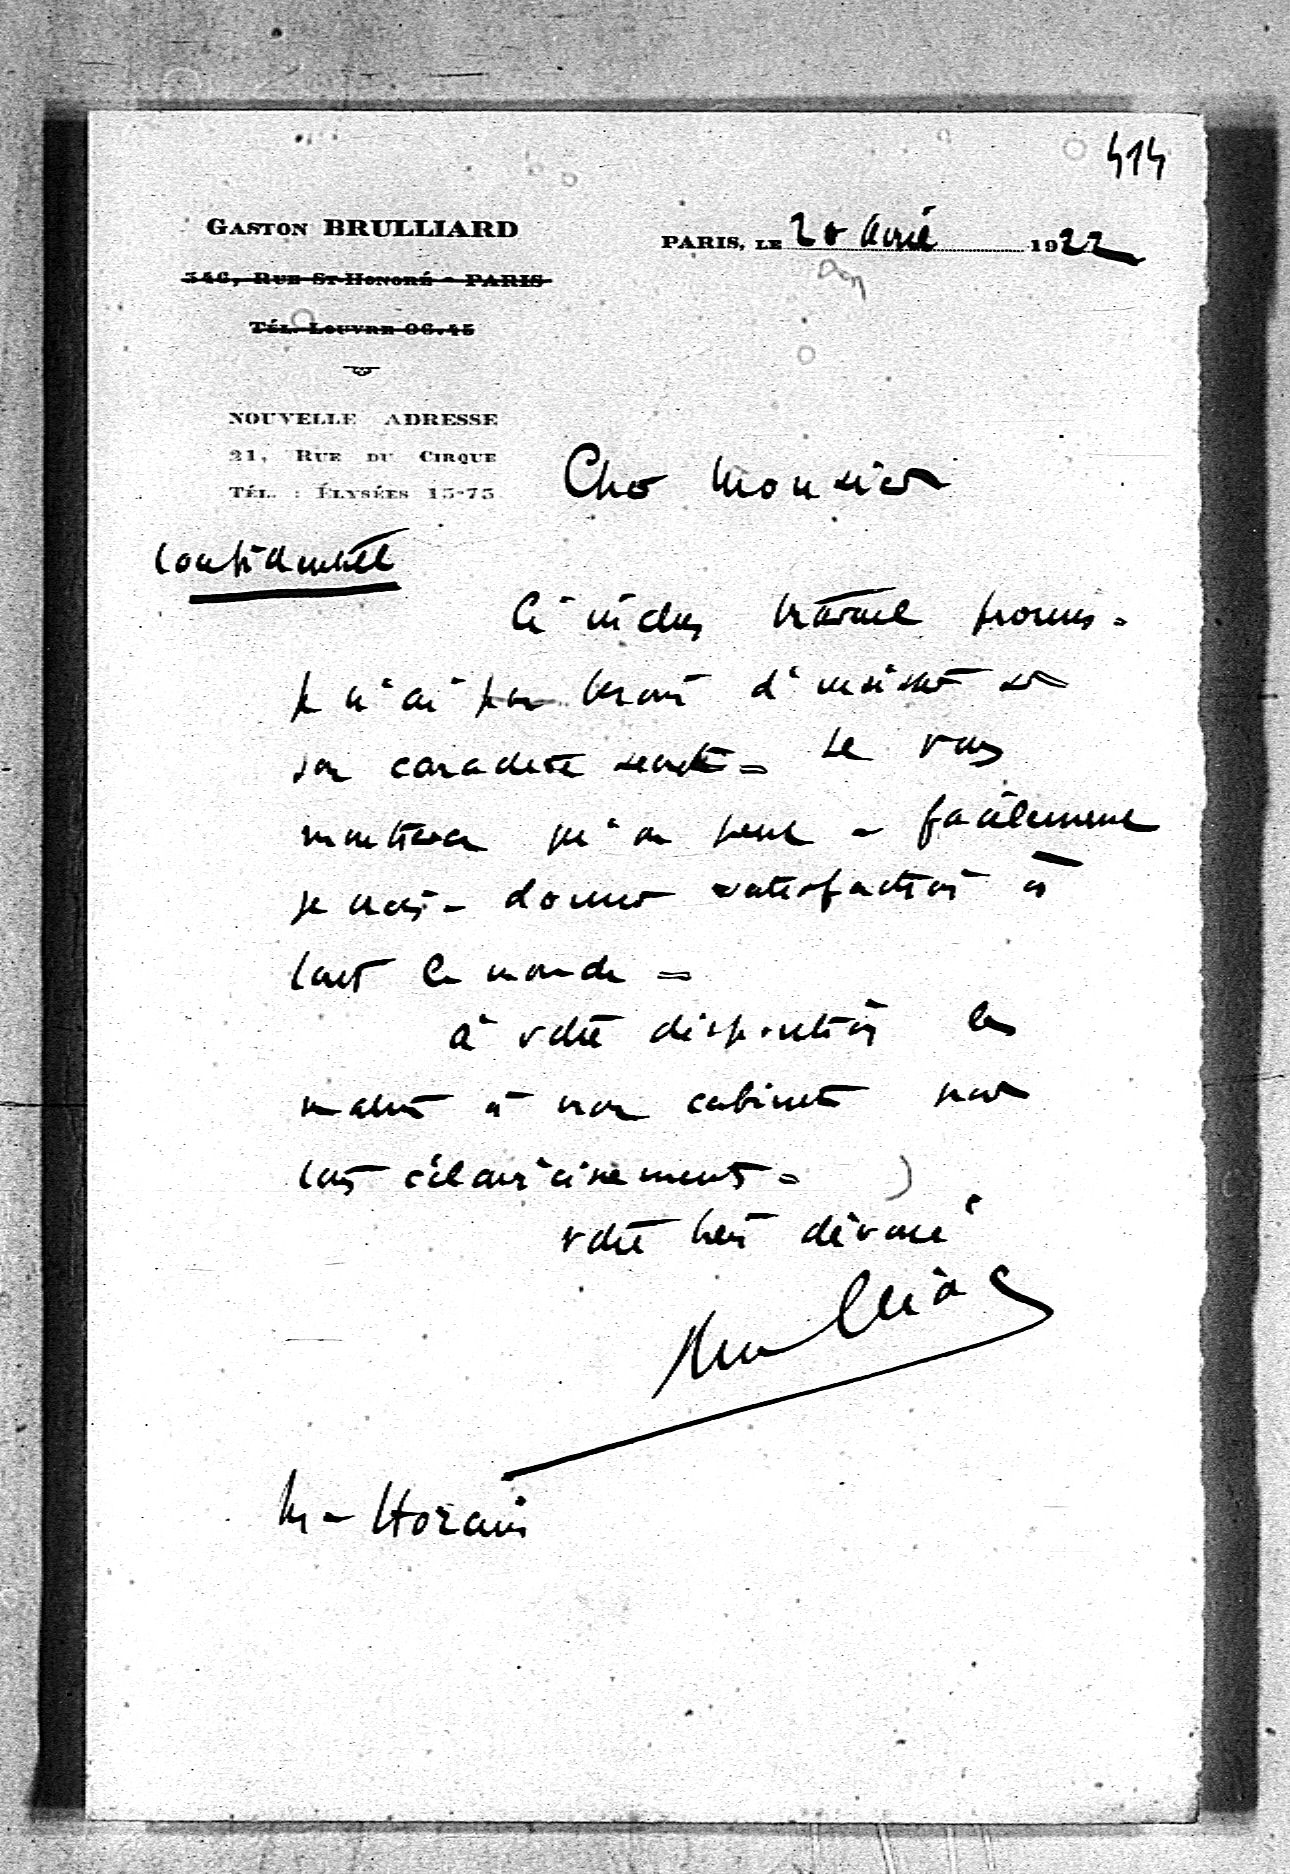 414
GASTON BRULLIARD
346, RUE ST HONORÉ - PARIS
TÉL. LOUVRE 06.45
PARIS, LE 20 avril 1922
NOUVELLE ADRESSE
21, RUE DU CIRQUE
TÉL. : ÉLYSÉES 15-75
Cher Monsieur
Confidentiel
Ci inclus travail promis -
Je n'ai pas besoin d'insister sur
son caractère secret = Il vous
montrera qu'on peut - facilement
je crois - donner satisfaction à
tout le monde =
à votre disposition les
matins à mon cabinet pour
tous éclaircissements =
votre bien dévoué
Brulliard
M - Hozain